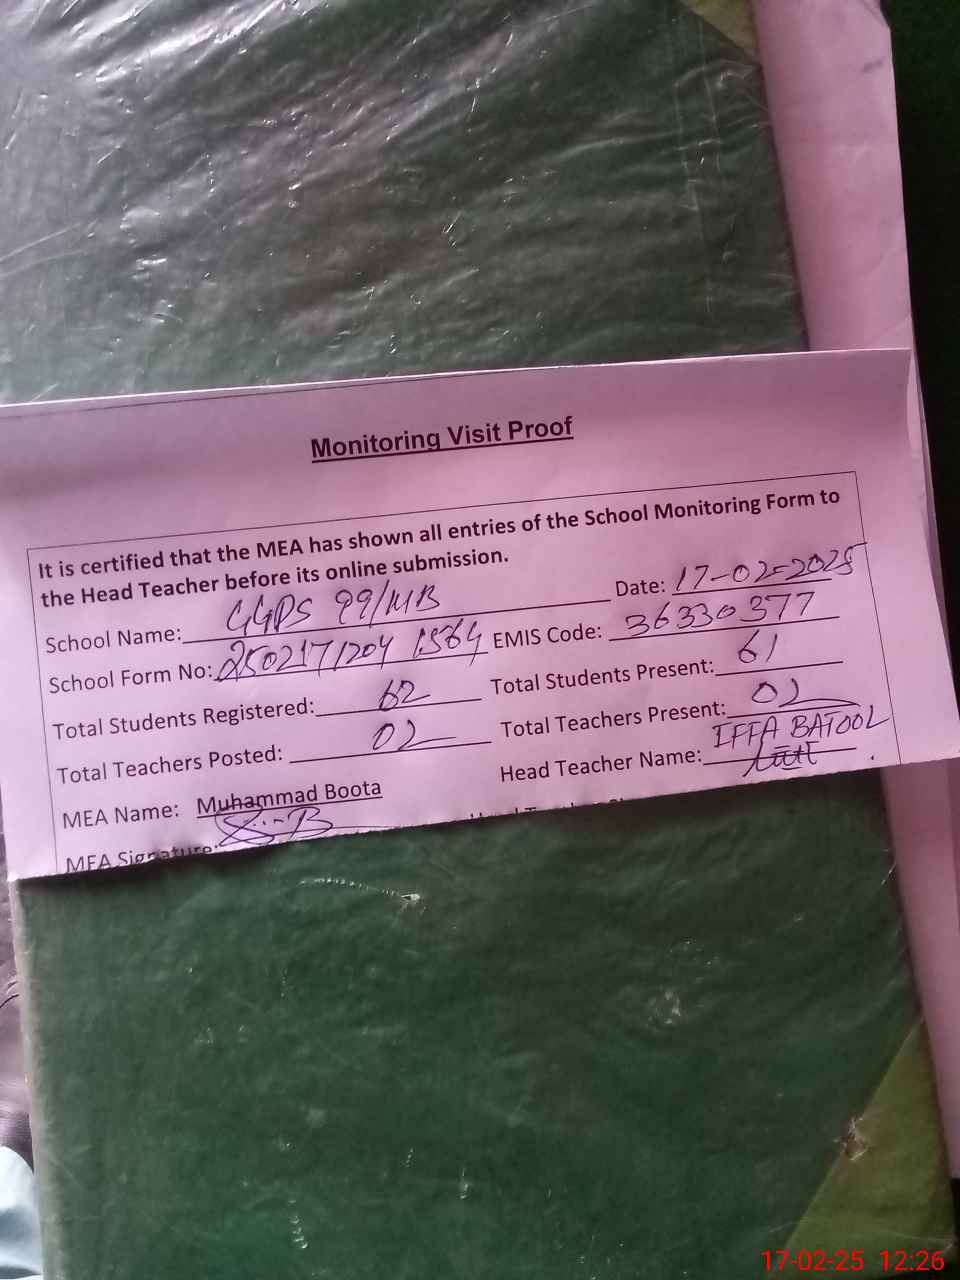 Monitoring Visit Proof
It is certified that the MEA has shown all entries of the School Monitoring Form to
the Head Teacher before its online submission.
School Name: GGPS 99/MB Date: 17-02-2025
School Form No: 2502171204 1564 EMIS Code: 36330377
Total Students Registered: 62 Total Students Present: 61
Total Teachers Posted: 02 Total Teachers Present: 02
MEA Name: Muhammad Boota Head Teacher Name: IFFA BATOOL
MEA Signature:
17-02-25 12:26